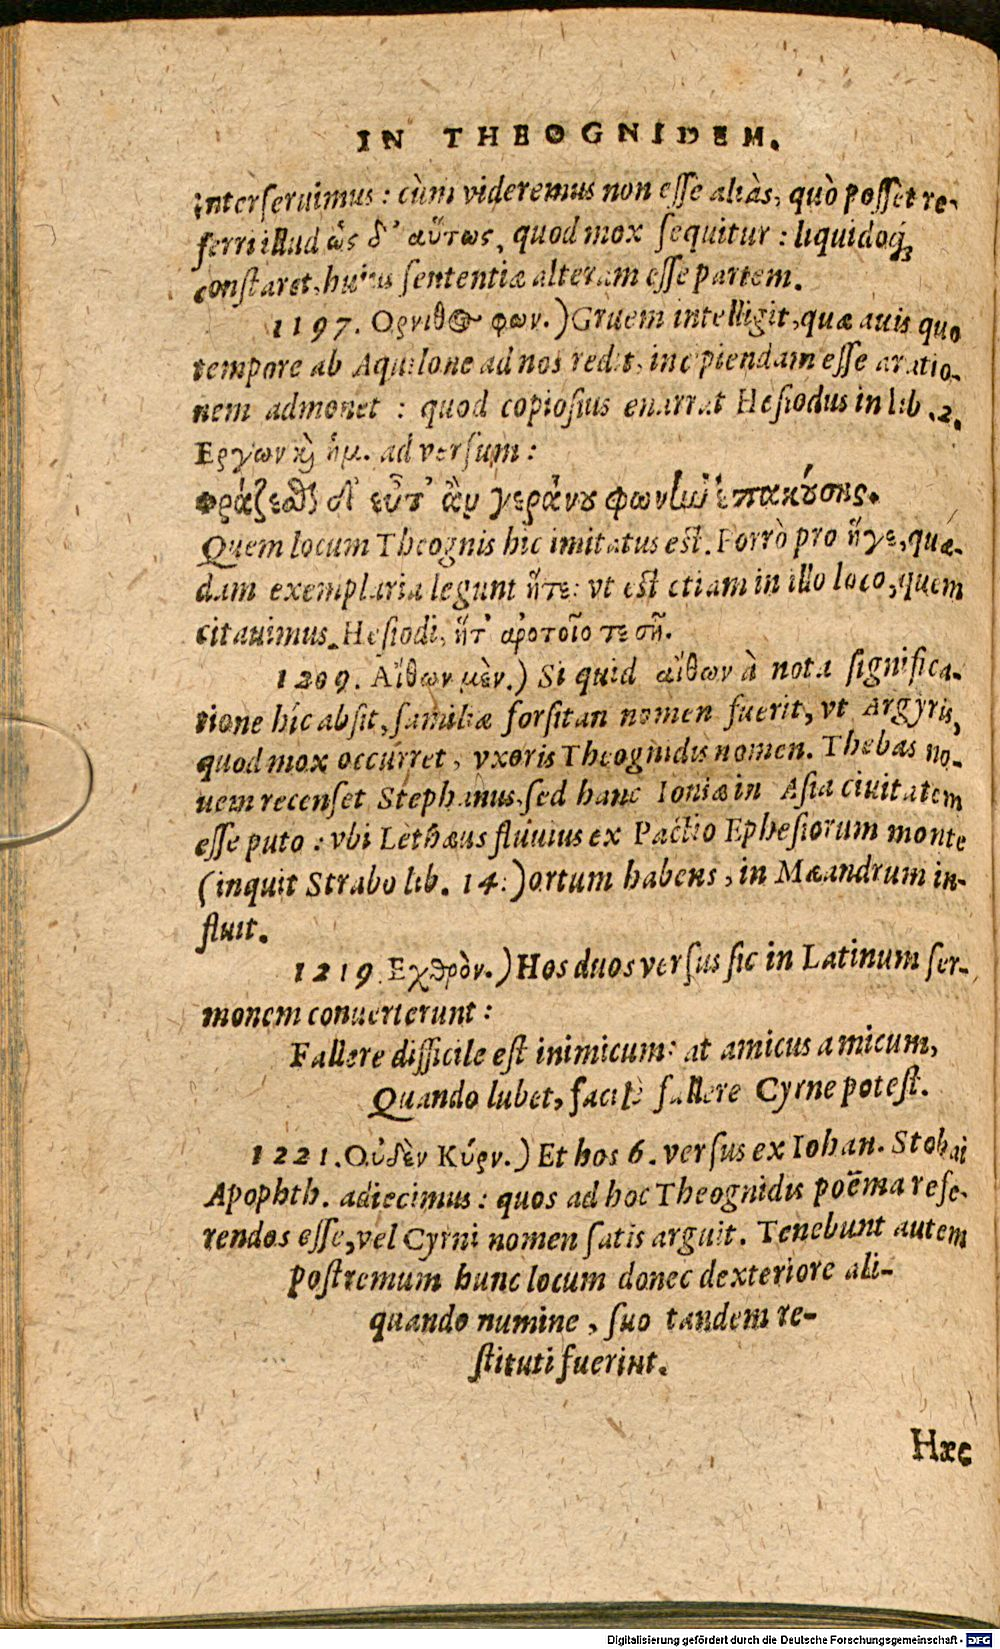 IN THEOGNIDEM.
interseruimus: cùm videremus non esse aliàs, quò posset re-
ferri illud ὣς δ' αὔτως, quod mox sequitur: liquidoq́;
constaret, huius sententiæ alteram esse partem.
1197. Ορνιθος φων.) Gruem intelligit, quæ auis quo
tempore ab Aquilone ad nos redit, incipiendam esse aratio-
nem admonet: quod copiosius enarrat Hesiodus in lib. 2.
Εργων κὶ ἡμ. ad versum:
φράζεσθζ δ' εὖτ' ἂν γεράνου φωνὴν ἐπακούσῃς.
Quem locum Theognis hic imitatus est. Porrò pro ἥγε, quæ-
dam exemplaria legunt ἥτε: vt est etiam in illo loco, quem
citauimus. Hesiodi, ἥτ' ἀρότοῖο τε σῆ.
1209. Αἴθων μὲν.) Si quid αἴθων à nota significa-
tione hîc absit, familiæ forsitan nomen fuerit, vt Argyris,
quod mox occurret, vxoris Theognidis nomen. Thebas no-
uem recenset Stephanus, sed hanc Ioniæ in Asia ciuitatem
esse puto: vbi Lethæus fluuius ex Pactio Ephesiorum monte
(inquit Strabo lib. 14.) ortum habens, in Mæandrum in-
fluit.
1219. Εχθρὸν.) Hos duos versus sic in Latinum ser-
monem conuerterunt:
Fallere difficile est inimicum: at amicus amicum,
Quando lubet, facilè fallere Cyrne potest.
1221. Οὐδὲν Κύρν.) Et hos 6. versus ex Iohan. Stobæi
Apophth. adiecimus: quos ad hoc Theognidis poëma refe-
rendos esse, vel Cyrni nomen satis arguit. Tenebunt autem
postremum hunc locum donec dexteriore ali-
quando numine, suo tandem re-
stituti fuerint.
Hæc
Digitalisierung gefördert durch die Deutsche Forschungsgemeinschaft - DFG